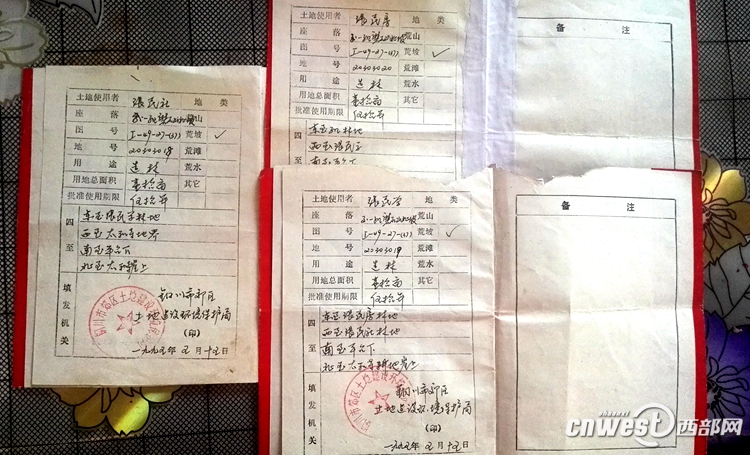 土地使用者 张民社 地 类
座 落 荒山
图 号 I-49-27-(37) 荒坡 ✓
地 号 20303018 荒滩
用 途 造林 荒水
用地总面积 壹拾亩 其它
批准使用期限 伍拾年
四至
东至张民孝林地
西至太和羊地界
南至羊台下
北至太和崖上
填发机关
铜川市郊区
土地建设环境保护局
(印)
一九九五年五月十五日
土地使用者 张民房 地 类
座 落 荒山
图 号 I-49-27-(37) 荒坡 ✓
地 号 20303020 荒滩
用 途 造林 荒水
用地总面积 壹拾亩 其它
批准使用期限 伍拾年
四
东至 林地
西至张民
备 注
土地使用者 张民 地 类
座 落 荒山
图 号 I-49-27-(37) 荒坡 ✓
地 号 20303019 荒滩
用 途 造林 荒水
用地总面积 壹拾亩 其它
批准使用期限 伍拾年
四至
东至张民房林地
西至张民社林地
南至羊台下
北至太和羊 地崖上
填发机关
铜川市郊区
土地建设环境保护局
(印)
一九九五年五月十五日
备 注
cnwest 西部网